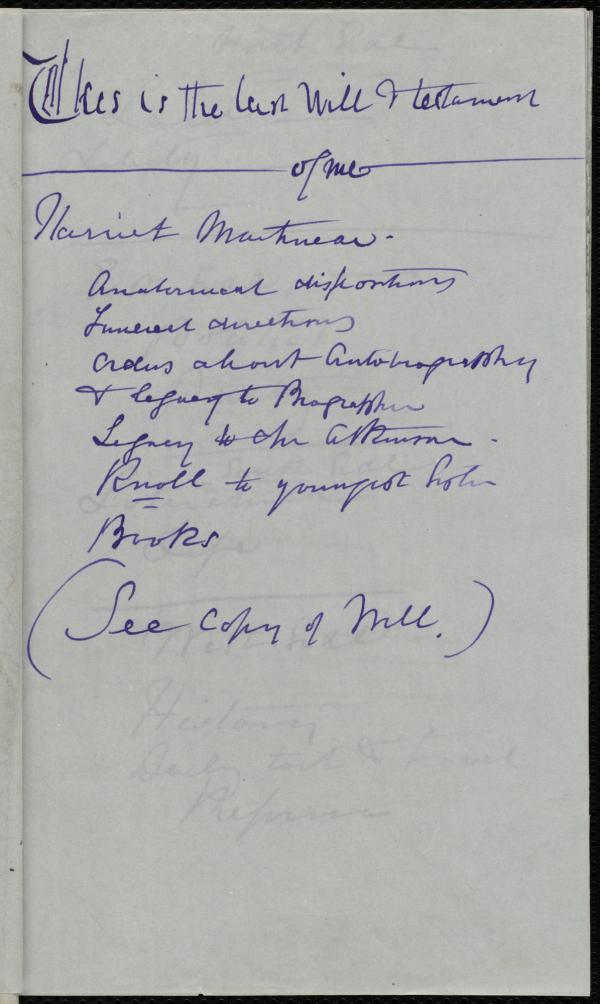 This is the last Will & testament
of me
Harriet Martineau.
Anatomical dispositions
Funeral directions
Orders about Autobiography
& legacy to Biographer
Legacy to Mr Atkinson.
Knoll to youngest Sister
Books
(See Copy of Will.)
History